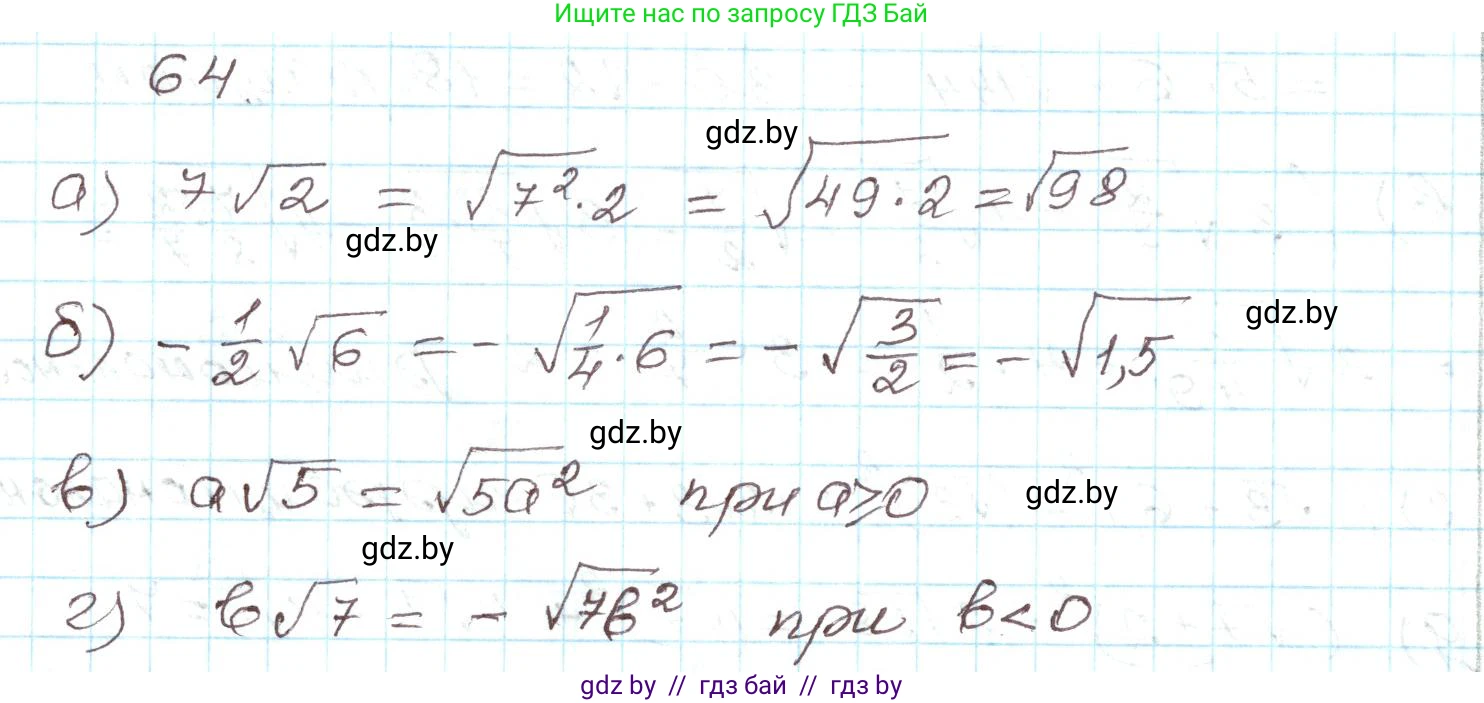 Ищите нас по запросу ГДЗ Бай
64.
gdz.by
а) 7√2 = √7²·2 = √49·2 = √98
gdz.by
б) - 1/2 √6 = - √1/4·6 = - √3/2 = - √1,5
gdz.by
gdz.by
в) a√5 = √5a² при a⩾0
gdz.by
gdz.by
г) b√7 = - √7b² при b<0
gdz by // гдз бай // гдз by